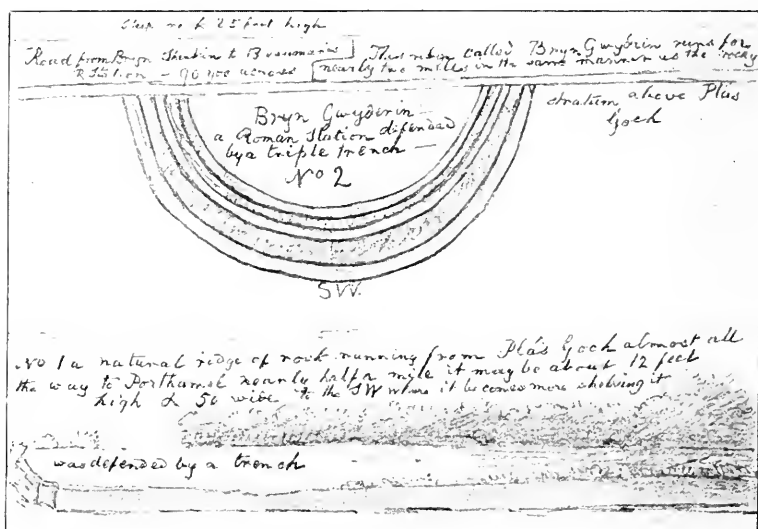 Steep no & 25 feet high
Road from Bryn to Beaumaris
R Station — 90 across
This when called Bryn Gwyderin runs for
nearly two miles in the same manner as the rocky
stratum above Plas
Goch
Bryn Gwyderin —
a Roman Station defended
by a triple trench —
No 2
SW.
No 1 a natural ridge of rock running from Plás Goch almost all
the way to Porthamel nearly half a mile it may be about 12 feet
high & 50 wide to the SW where it becomes more shelving it
was defended by a trench